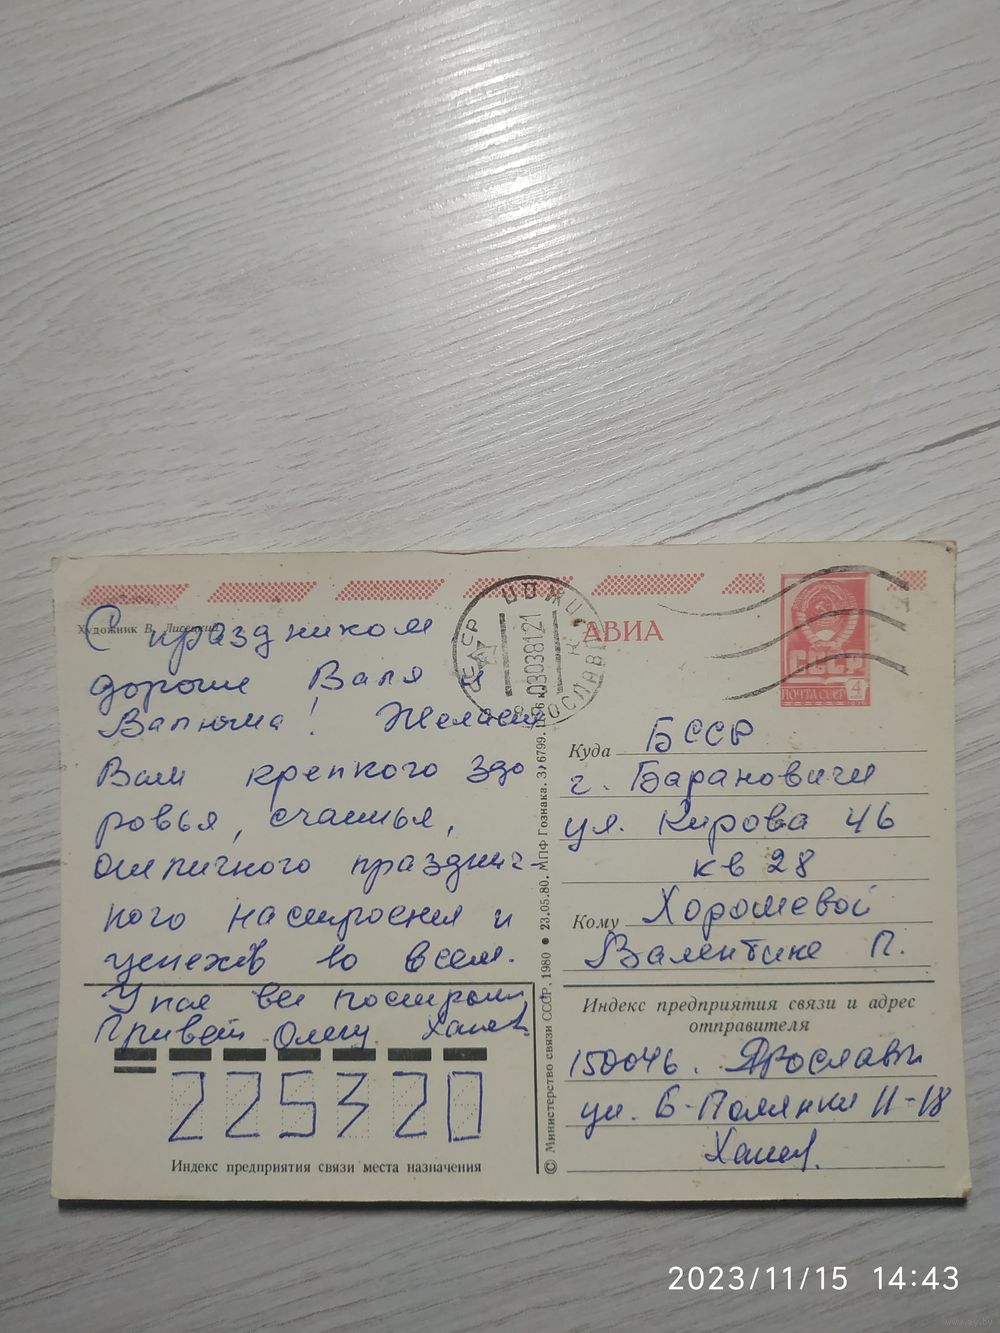 Художник В. Лисецкий
С праздником
дорогие Валя и
Валюша! Желаем
Вам крепкого здо
ровья, счастья,
отличного празднич-
ного настроения и
успехов во всем.
У нас все
Привет Олегу.
225320
Индекс предприятия связи места назначения
© Министерство связи СССР, 1980 • 23.05.80. МПФ Гознака. 3. 6799.
08038121
АВИА
СССР
ПОЧТА СССР 4
Куда БССР
г. Барановичи
ул. Кирова 46
кв 28
Кому Хорошевой
Валентине П.
Индекс предприятия связи и адрес
отправителя
150046. Ярославль
ул. Б-Полянки 11-18
2023/11/15 14:43
www.ay.by